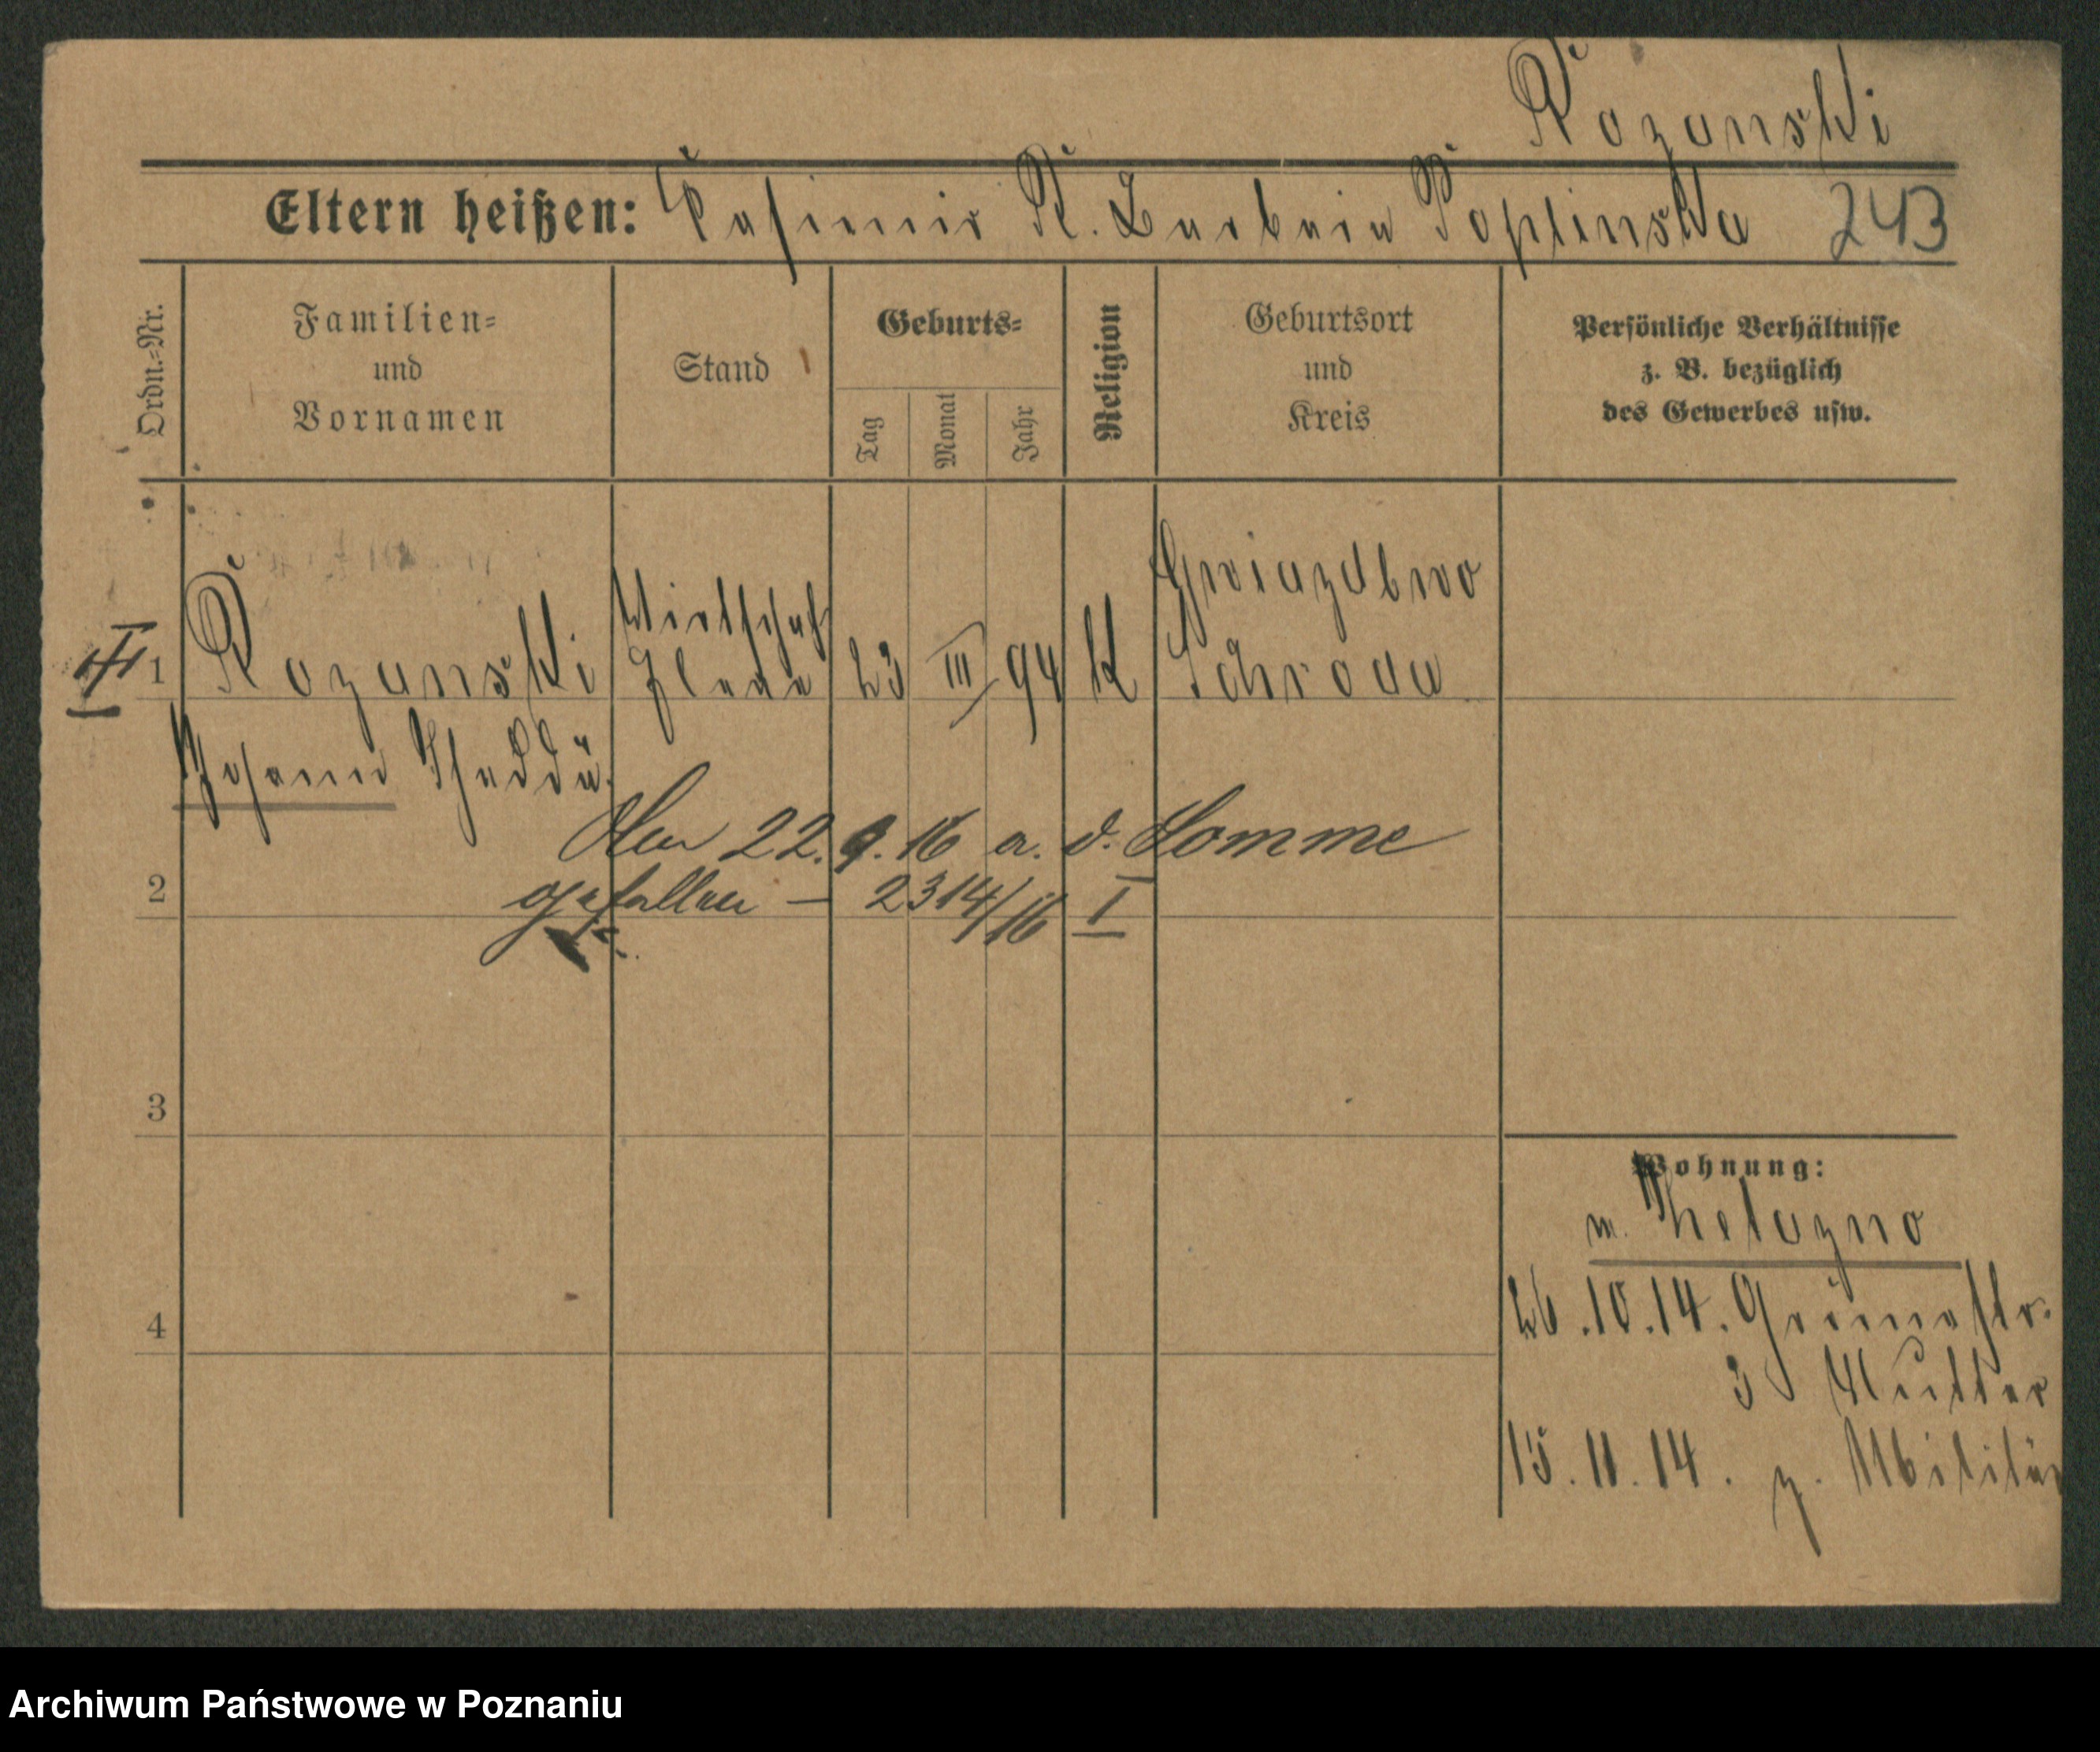 Rozanski
Eltern heißen: Kasimir R. Barbara Poplinska 243
Ordn.-Nr.
Familien-
und
Vornamen
Stand
Geburts-
Tag
Monat
Jahr
Religion
Geburtsort
und
Kreis
Persönliche Verhältnisse
z. B. bezüglich
des Gewerbes usw.
1 Rozanski
Wirtschaft
Eleve
23 III 94 K
Schroda
Johann Thaddä.
Den 22.9.16 a. d. Somme
2 gefallen — 2314/16 I
3
4
Wohnung:
26.10.14. Grünestr.
3 Mutter
15.11.14. z. Militär
Archiwum Państwowe w Poznaniu